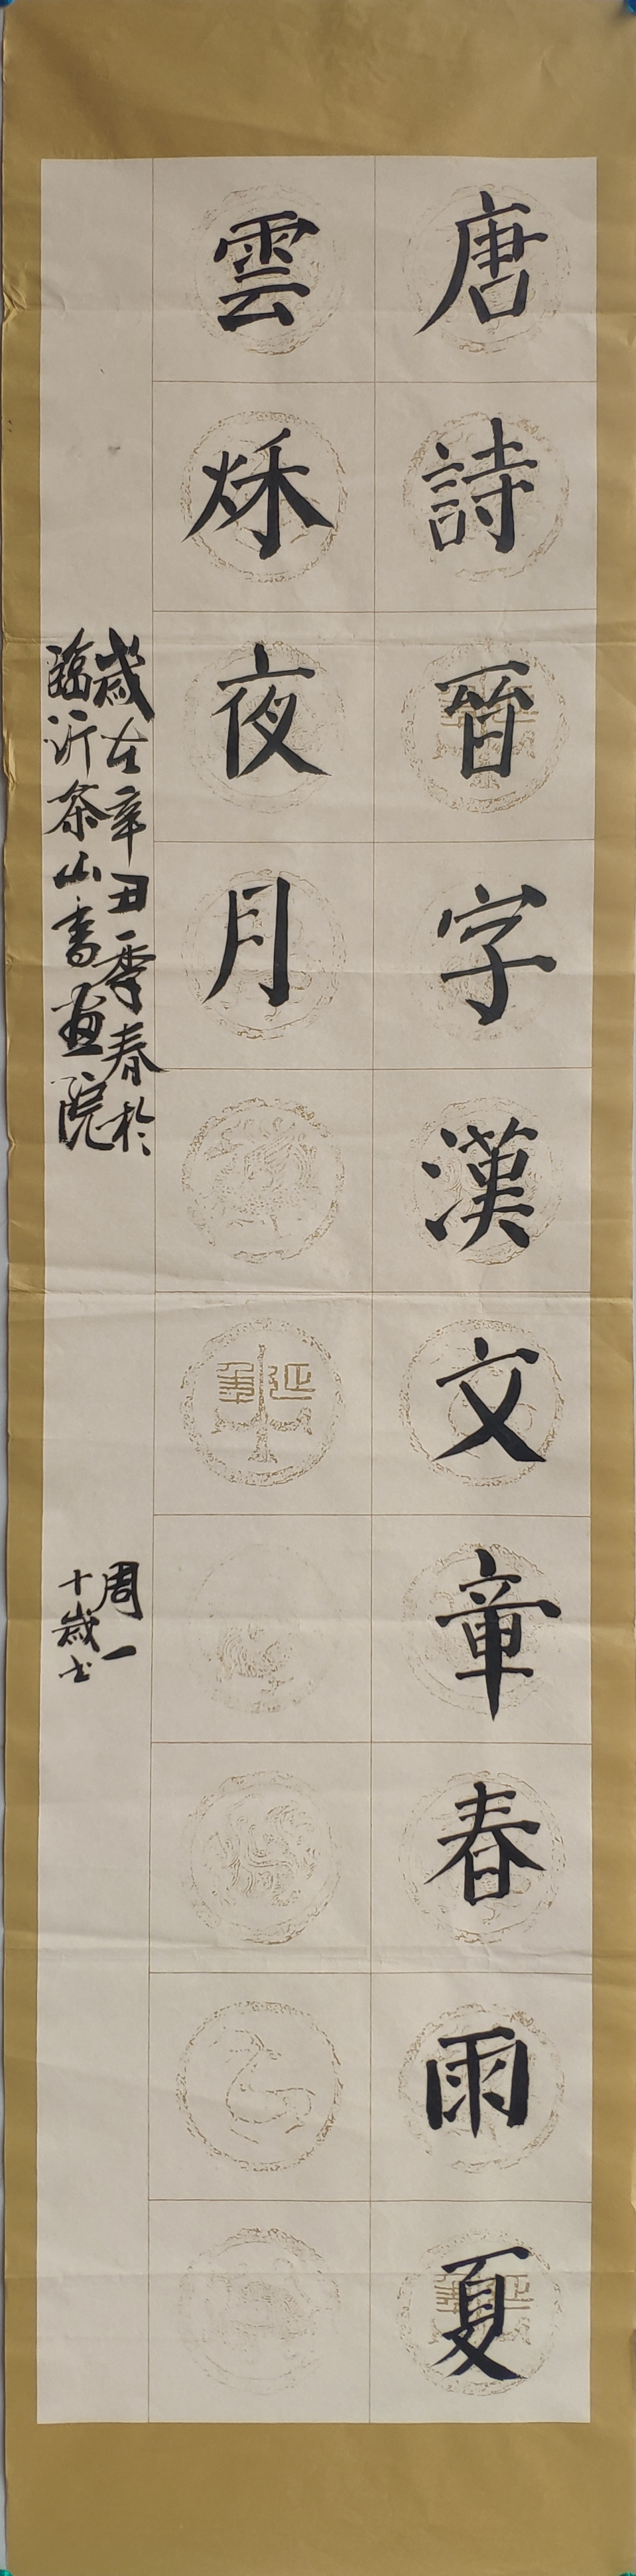 唐詩晉字漢文章春雨夏
雲秌夜月
歲在辛丑季春於
臨沂茶山書畫院
周一
十歲书